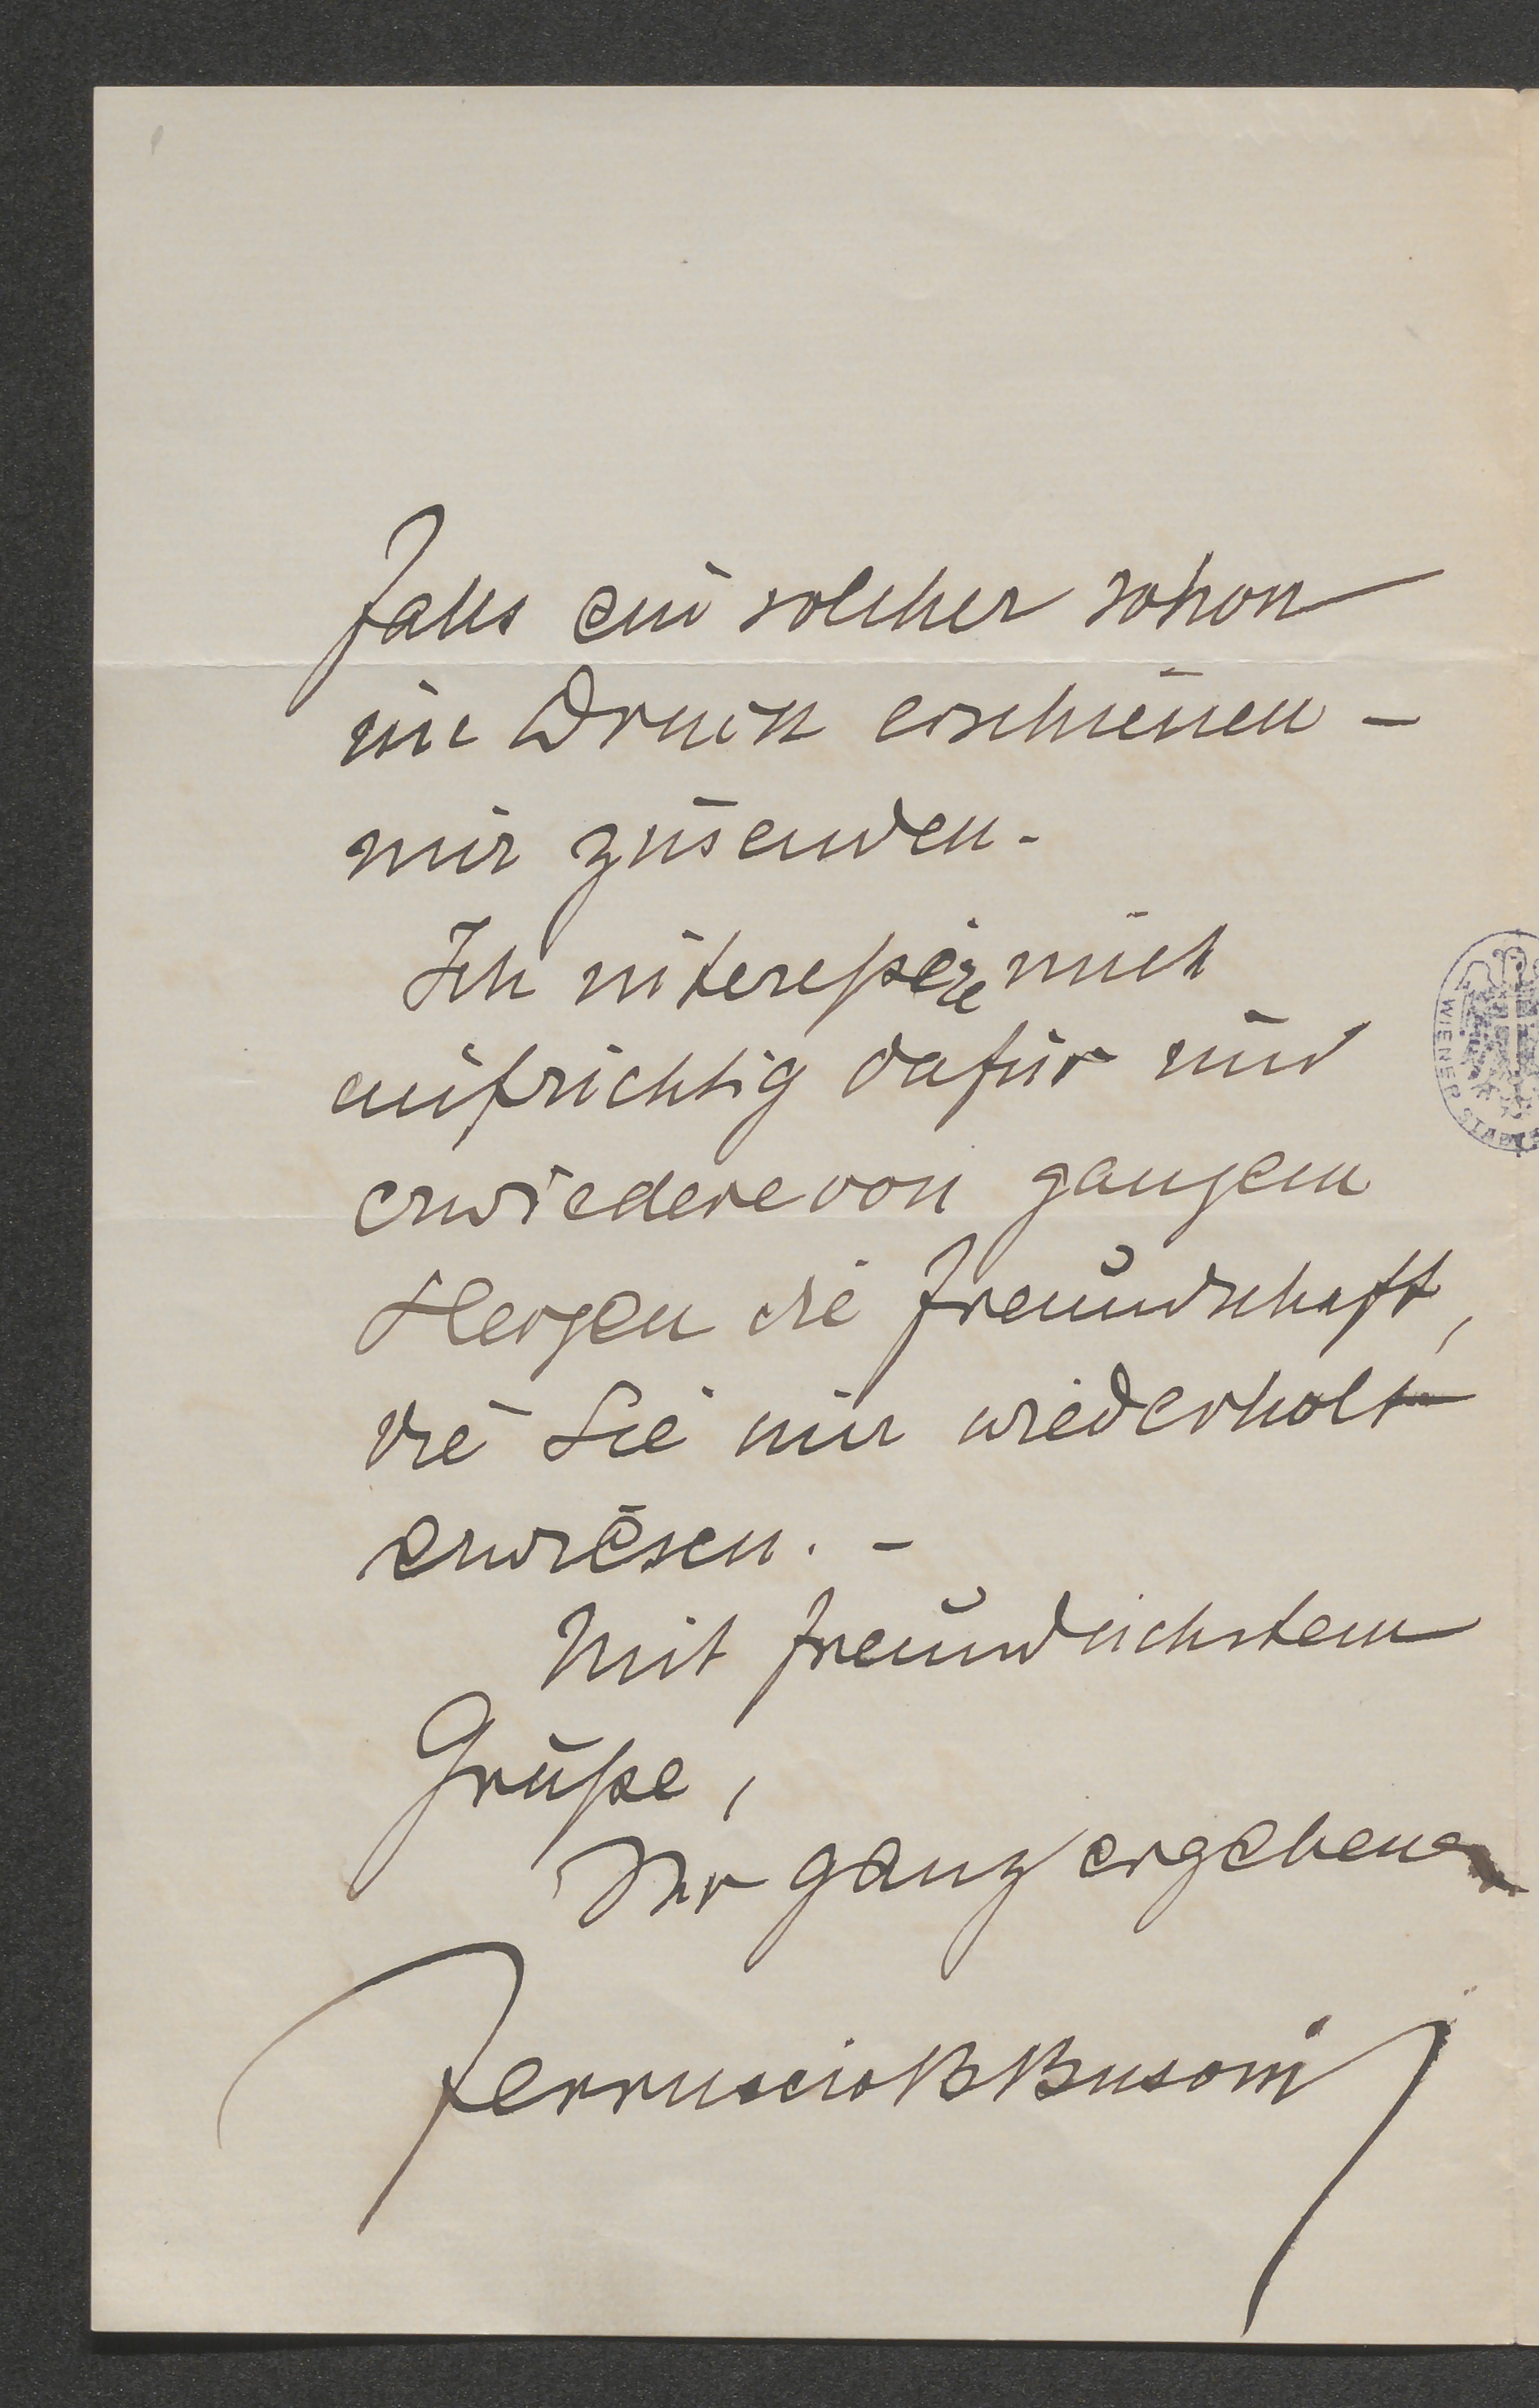 falls ein solcher schon
im Druck erschienen –
mir zusenden.
Ich intereßire mich
aufrichtig dafür und
erwiedere von ganzem
Herzen die Freundschaft,
die Sie mir wiederholt
erwiesen. –
Mit freundlichstem
Gruße,
Ihr ganz ergebener
Ferruccio B Busoni
WIENER STADT